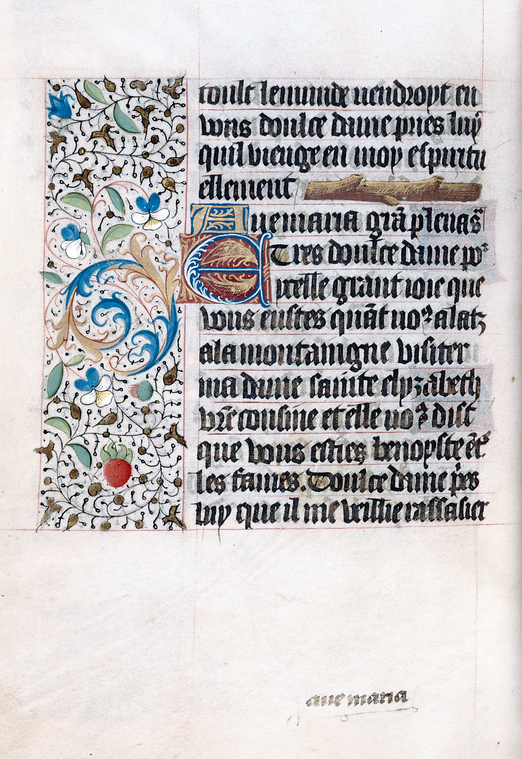 toult le munde uendroyt en
vous doulce dame pries luy
quil vienge en moy espiritu
ellement
Aue maria grã plenas
Tres doulce dame po²
icelle grant ioie que
vous eustes quãt uo² alatz
a la montaingne visiter
ma dame sainte elyzabeth
vr̃e cousine et elle uo² dist
que vous esties benoyste ẽt²
les fames. Doulce dame p̃es
luy que il me veillie rassasier
aue maria